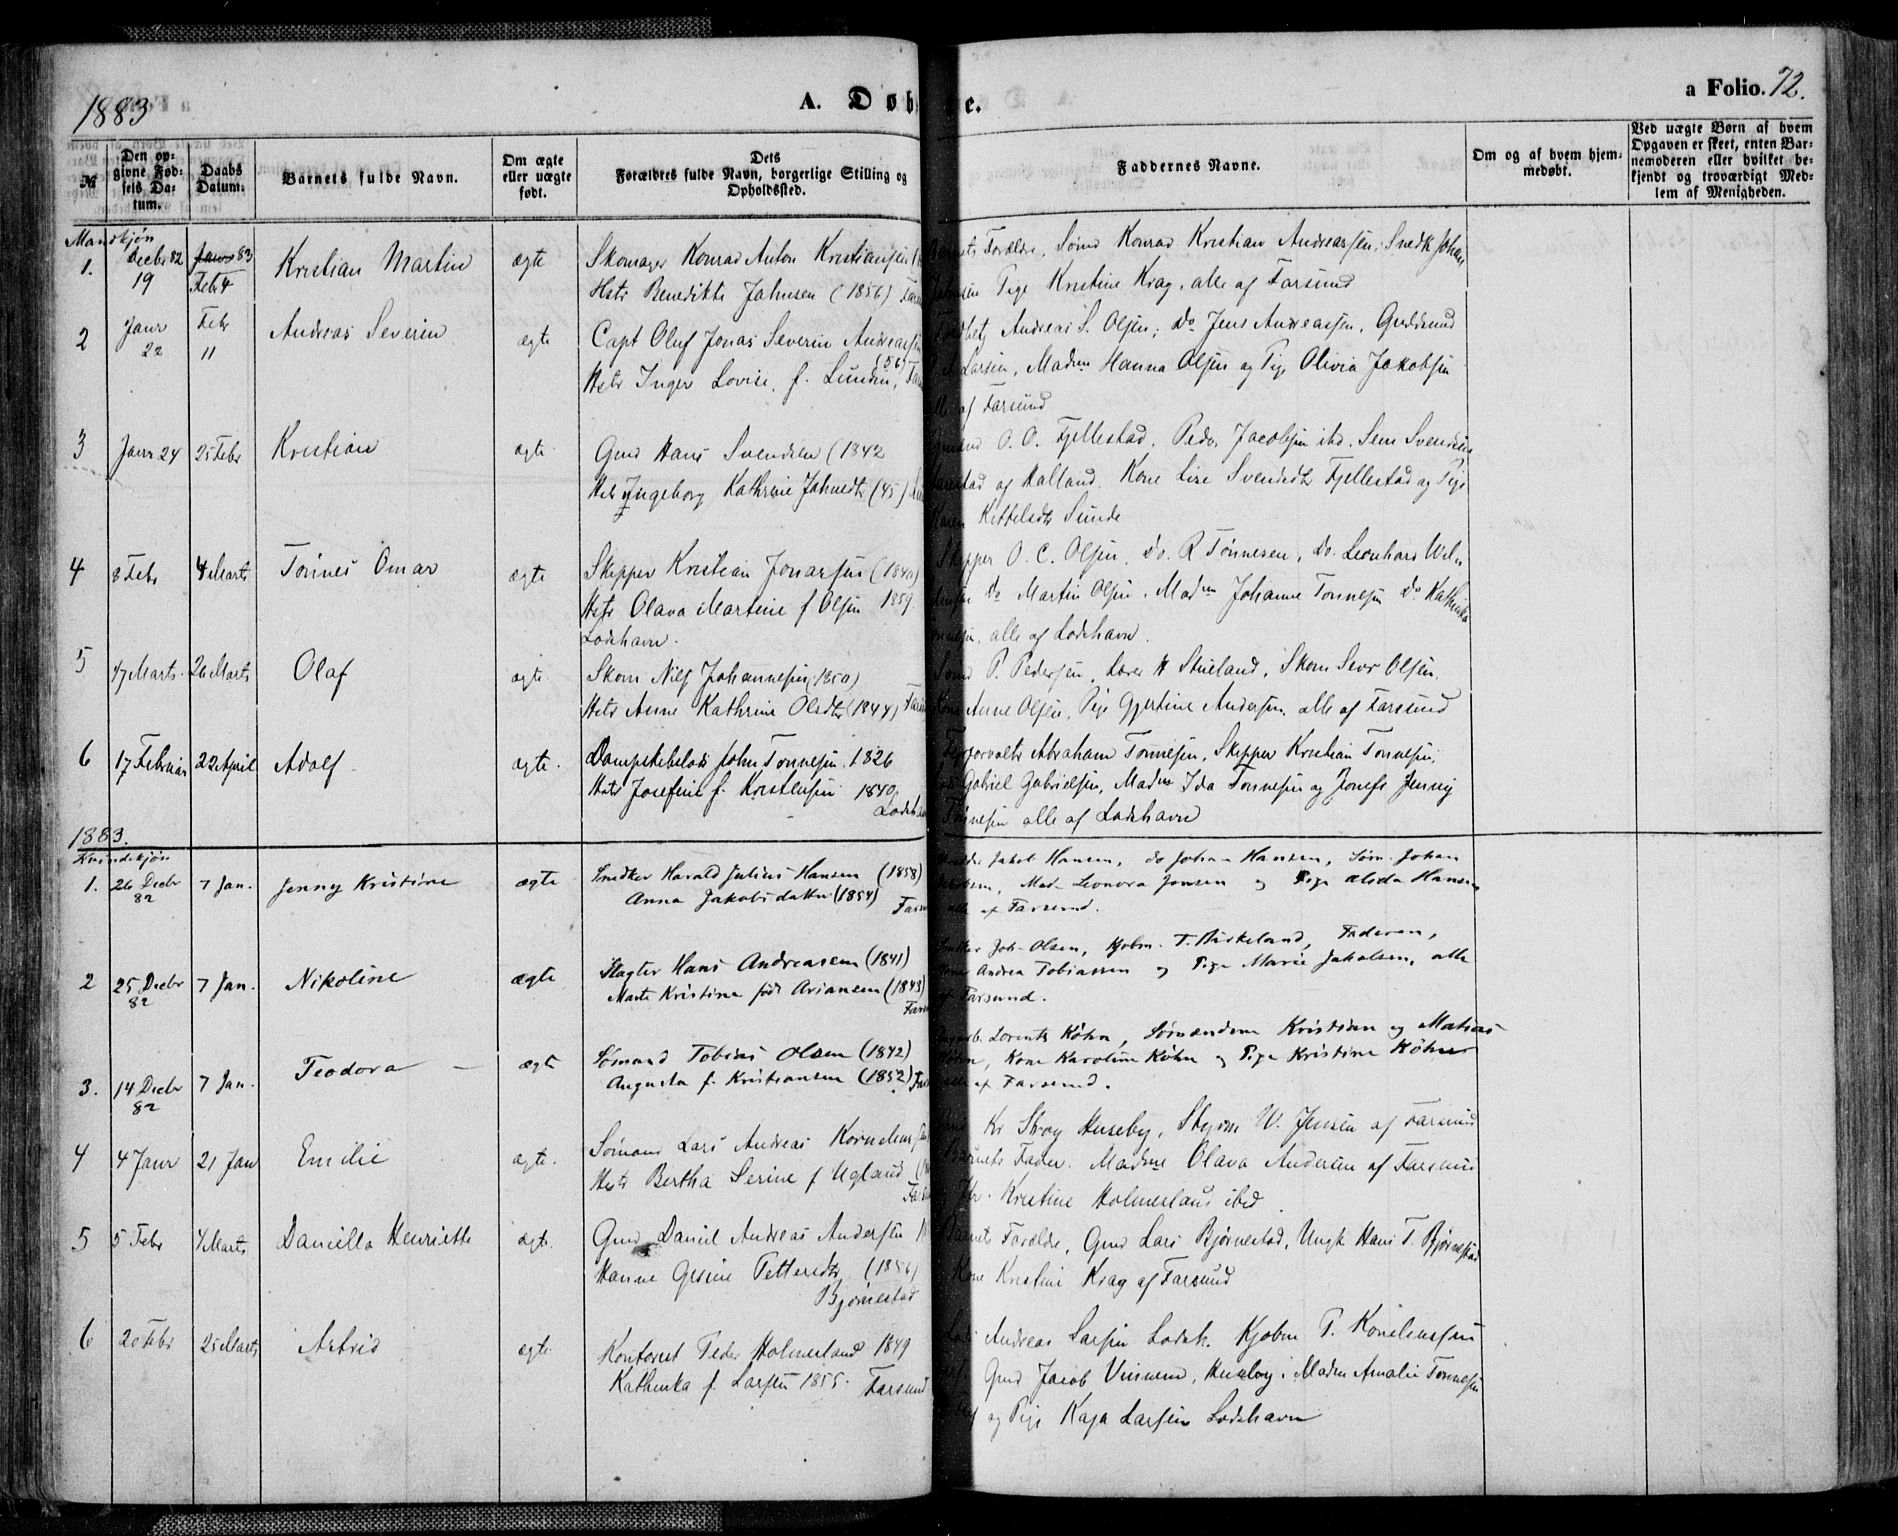 1883
A. Døb
e.
a Folio. 72.
№
Den opgivne Fødsels Datum.
Daabs Datum.
Barnets fulde Navn.
Om ægte eller uægte født.
Dets Forældres fulde Navn, borgerlige Stilling og Opholdssted.
Faddernes Navne.
Om og af hvem hjemmedøbt.
Ved uægte Børn af hvem Opgaven er skeet, enten Barnemoderen eller hvilket bekjendt og troværdigt Medlem af Menigheden.
Mandkjøn
1. Decbr 82 19 Janr 83 Febr 4 Kristian Martin ægte Skomager Konrad Anton Kristiansen
Hstr Benedikte Jahnsen (1856)
Forældre, Sømd Konrad Kristian Andreassen, Snedk Johan
Pige Kristine Krag, alle af Farsund
2 Janr 22 Febr 11 Andreas Severin ægte Capt Oluf Jonas Severin
Hstr Inger Lovise, f. Lunden, (56)
Andreas S. Olsen; Do Jens Andreassen, Guldsmd
Larsen, Madm Hanna Olsen og Pige Olivia Jakobsen
af Farsund
3 Janr 24 25 Febr Kristian ægte Gmd Hans Svendsen (1842
Hstr Ingeborg Kathrine Jahnsdtr (45)
O. O. Fjellestad, Pedr. Jacobsen ibd. Sem Svendsen
og Kalland. Kone Lise Svendsdtr Fjellestad og Pige
Karen Kittelsdtr Sunde
4 8 Febr 4 Marts Tønnes Omar ægte Skipper Kristian Jonassen (1840)
Hstr Olava Martine f Olsen 1859.
Lodshavn.
Skipper O. C. Olsen, Do. R Tønnesen, Do. Leonhard
Do Martin Olsen, Madm Johanne Tønnesen Do Kathinka
alle af Lodshavn.
5 17 Marts 26 Marts Olaf ægte Skom Nils Johannesen (1850)
Hstr Anne Kathrine Olsdtr (1844)
Sømd P. Pedersen, Lærer H Stueland, Skom Sevr Olsen,
Kone Anne Olsen, Pige Gjertine Andersen, alle af Farsund
6 17 Februar 22 April Adolf ægte. Dampskibslods John Tønnesen 1826
Hstr Josefine f. Kristensen 1840
Abraham Tønnesen, Skipper Kristian Tønnesen,
Gabriel Gabrielsen, Madm Ida Tønnesen og Jomfr Jenny
Tønnesen alle af Lodshavn
1883.
Kvindekjøn
1. 26 Decbr 82 7 Jan. Jenny Kristine ægte Snedker Harald Julius Hansen (1858)
Anna Jakobsdatter (1854)
Jakob Hansen, do Johan Hansen, Søm. Johan
Mad. Leonora Jensen og Pige Alida Hansen
alle af Farsund.
2 25 Decbr 82 7 Jan. Nikoline ægte Slagter Hans Andreasen (1841)
Marte Kristine født Ariansen (1843)
Joh. Olsen, Kjøbm. T. Birkeland, Faderen,
Andrea Tobiassen og Pige Marie Jakobsen, alle
af Farsund.
3. 14 Decbr 82 7 Jan. Teodora ægte Sømand Tobias Olsen (1842)
Augusta f. Kristiansen (1852)
Lorents Køhn, Sømændene Kristian og Matias
Køhn, Kone Karoline Køhn og Pige Kristine Køhn
alle af Farsund.
4 4 Janr 21 Jan Emilie ægte. Sømand Lars Andreas
Hstr Bertha Serine f Ugland
Kr Strøy Huseby, Styrm W. Jensen af Farsund
Barnets Fader. Madme Olava Andersen af Farsund
Kristine Holmesland ibd
5 5 Febr 4 Marts Daniella Henriette ægte. Gmd Daniel Andreas Andersen
Hanne Gesine Pettersdtr (1856)
Bjørnestad
Barnets Forældre, Gmd Lars Bjørnestad, Ungk Hans T. Bjørnestad
Kone Kristine Krag af Farsund
6 20 Febr 25 Marts Astrid ægte. Kontorist Peder Holmesland 1849
Kathinka f. Larsen 1855. Farsund
Andreas Larsen Lodsh. Kjøbm P. Kornelius­sen
Gmd Jacob Huseby, Madm Amalie Tønnesen
og Pige Kaja Larsen Lodshavn